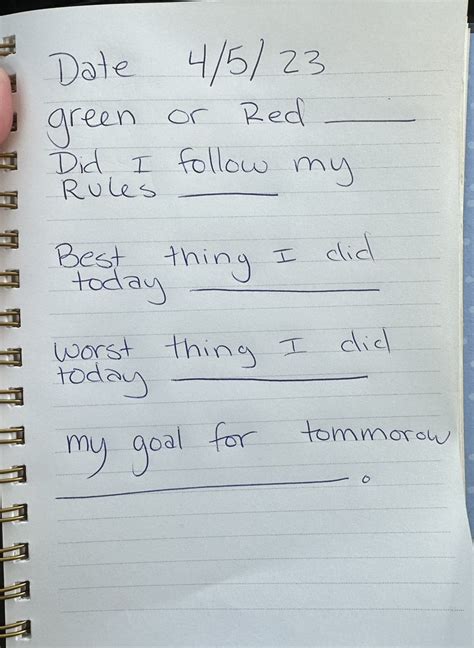 Date 4/5/23
green or Red ____
Did I follow my
Rules ____
Best thing I did
today ____
worst thing I did
today ____
my goal for tommorow
____.